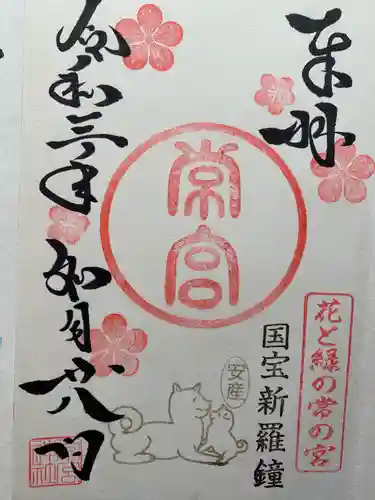 奉拝
常宮
花と緑の常の宮
国宝新羅鐘
安産
令和三年
如月廿八日